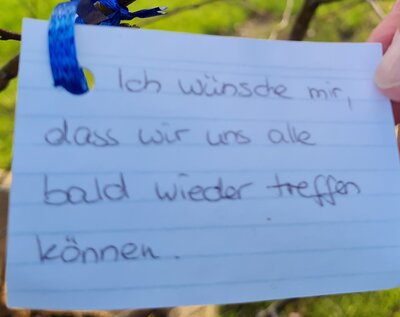 Ich wünsche mir,
dass wir uns alle
bald wieder treffen
können.